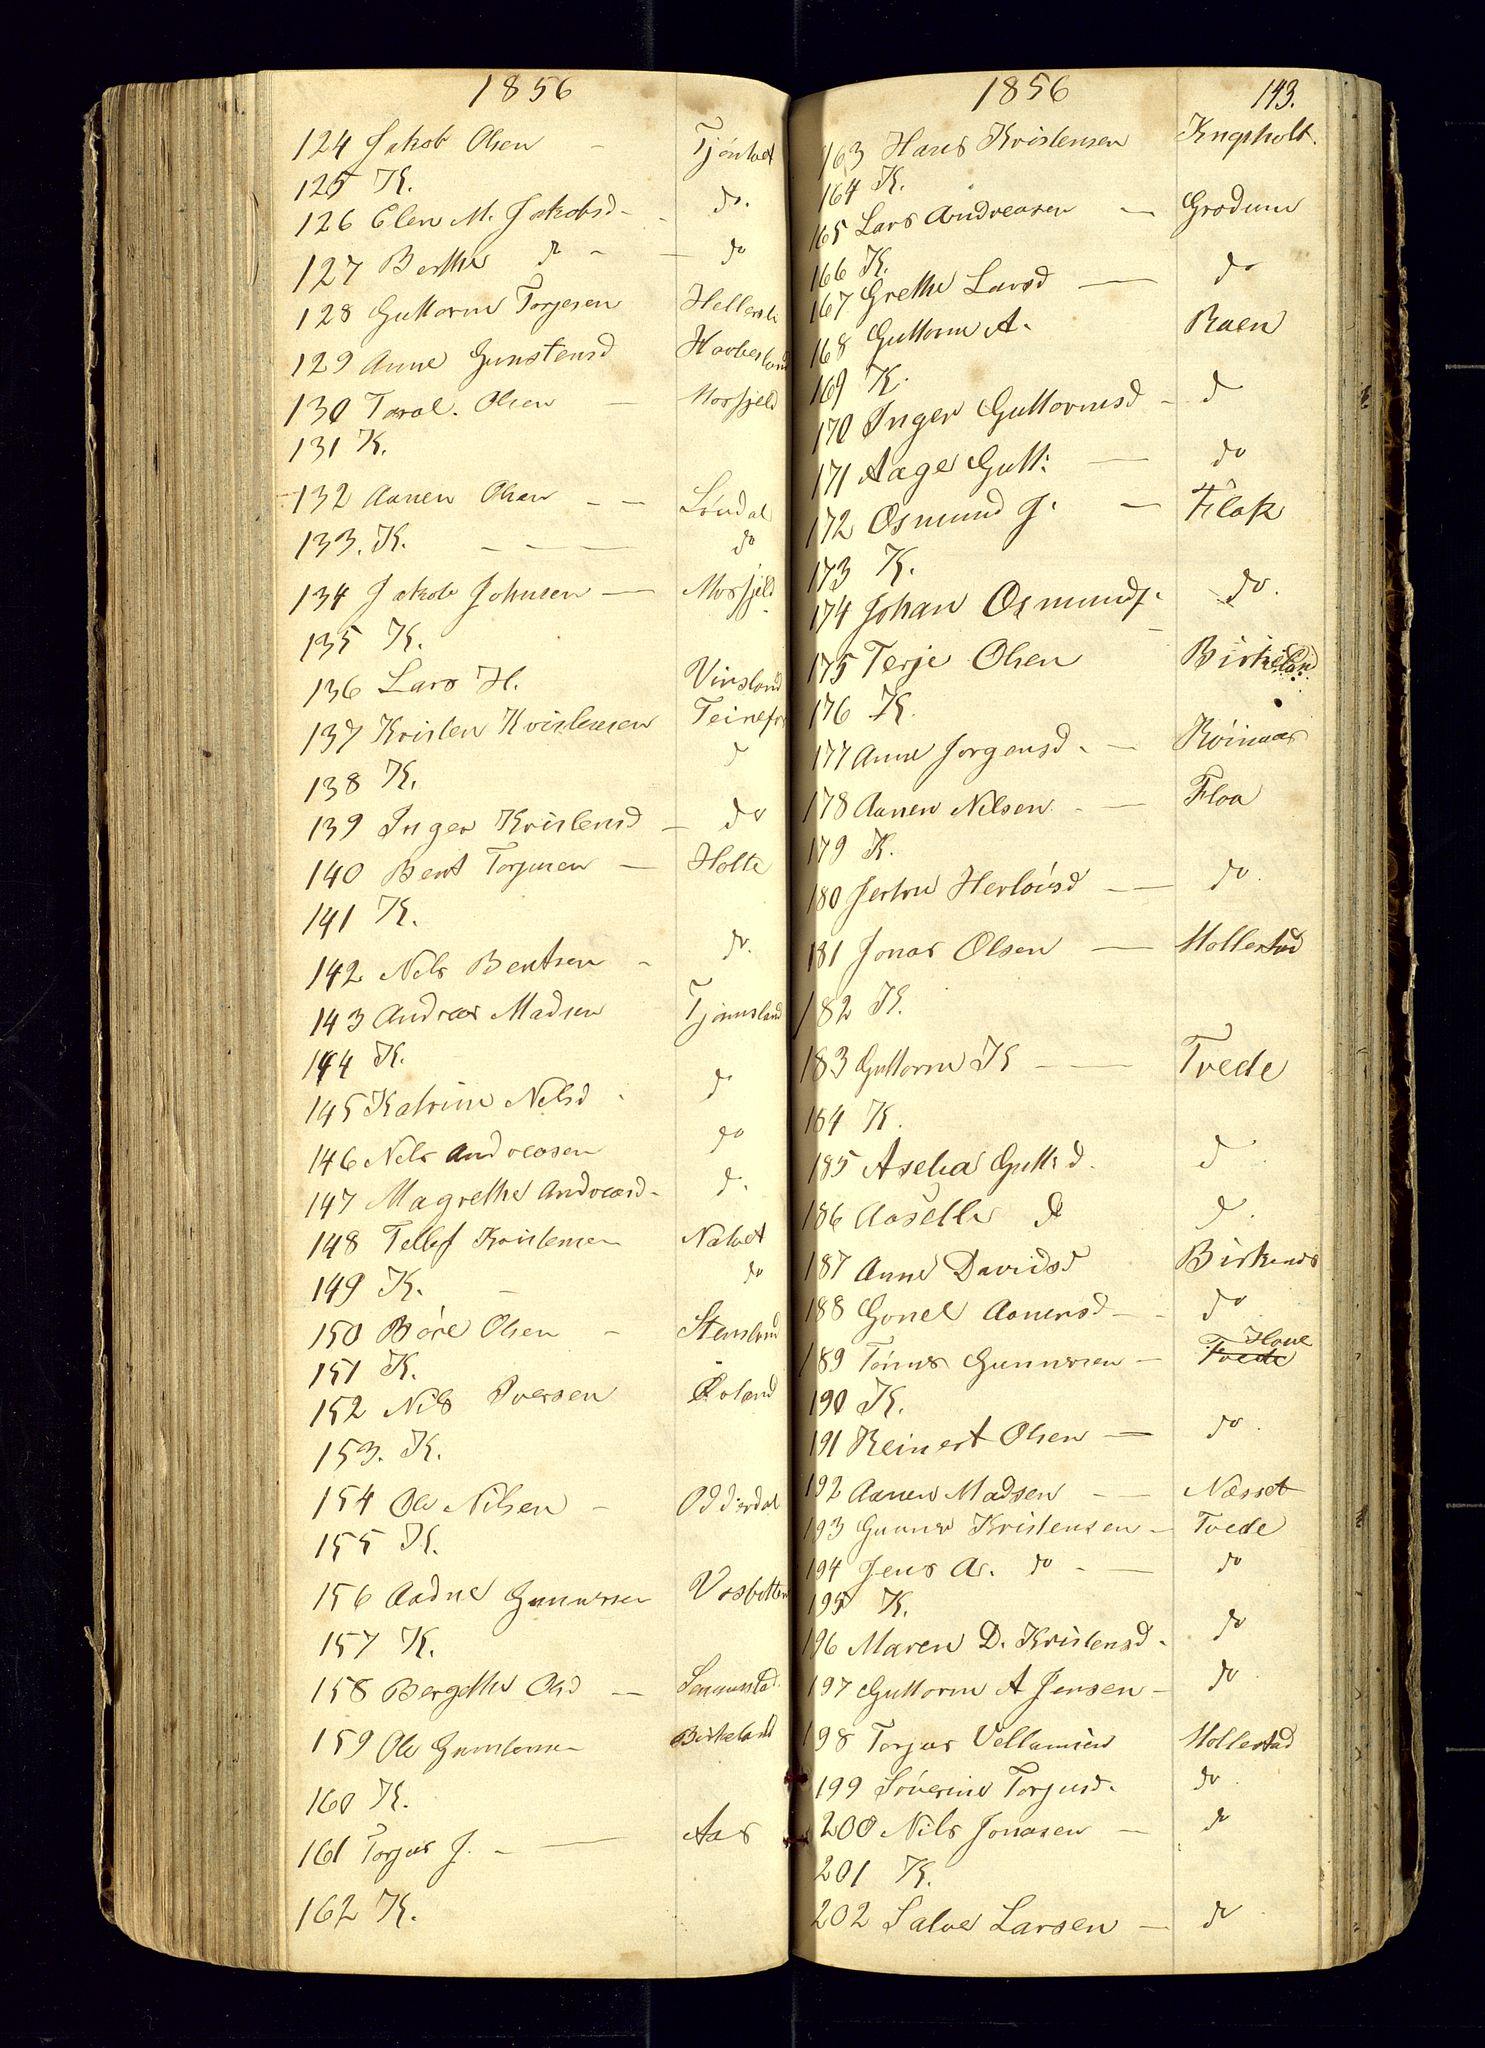 1856
124 Jakob Olsen - Tjöntvet
125 K.
126 Elen M. Jakobsd - do.
127 Berthe do - - do
128 Guttorm Torjesen
129 Anne Gunstensd
130 Taral. Olsen - Mosfjeld
131 K.
132 Aanen Olsen - - Løndal
133. K. - - - do
134 Jakob Johnsen - Mosfjeld
135 K.
136 Lars H. Vinsland
137 Kristen Kristensen
138 K. d
139 Inger Kristensd - do
140 Bent Torjusen - Holte
141 K.
142 Nels Bentsen - do.
143 Andreas Madsen Tjomsland
144 K.
145 Katrine Nelsd - do
146 Nels Andreasen do
147 Magrethe Andreasd - d.
148 Tellef Kristensen
149 K. - do
150 Böre Olsen - Stensland
151 K.
152 Nils Iversen
153. K.
154 Ole Nilsen - Odderdal
155 K.
156 Aadne Gunnersen Vasbotten
157 K.
158 Bergethe Olsd -
159 Ole Gunstensen Birkeland
160 K.
161 Torjus J. - - Aas
162 K.
1856 143.
163 Hans Kristensen Knapholt.
164 K.
165 Lars Andreasen - Grødum
166 K.
167 Grethe Larsd - do
168 Guttorm A. Raen
169 K.
170 Inger Guttormsd - d
171 Aage Gutt: - do
172 Osmund J. - Flak
173 K.
174 Johan Osmunds. - do.
175 Terje Olsen Birkeland
176 K.
177 Anne Jorgensd. -
178 Aanen Nilsen. - Floa
179 K.
180 Jertru Herlöisd - - do.
181 Jonas Olsen - Mollestad
182 K.
183 Guttorm K - - Tvede
184 K.
185 Aselia Gutt:d. d
186 Aaselle do d.
187 Anne Davidsd Birkenes
188 Gonel Aanensd - - do
189 Tönnes Gunnersen - Tvede Hove
190 K.
191 Reinert Olsen - do.
192 Aanen Madsen - - Næsset
193 Gunner Kristensen - Tvede
194 Jens A. do - - do
195 K.
196 Maren D. Kristensd - do
197 Guttorm A Jensen - do
198 Torjus Vellumsen Mollestad
199 Söverine Torjusd. do
200 Nils Jonasen - do
201 K.
202 Salve Larsen - do